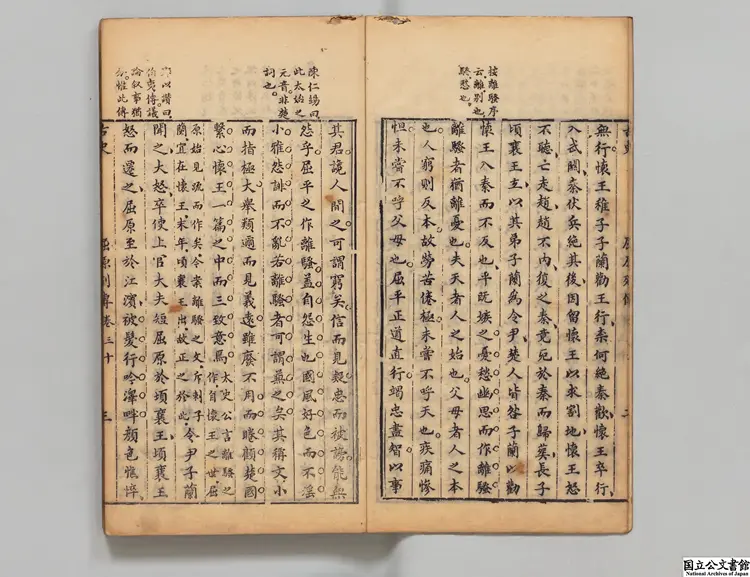 按離騷序
云離別也
騷愁也
無行懷王稚子子蘭勸王行柰何絶秦歡懷王卒行
入武關秦伏兵絶其後因留懷王以求割地懷王怒
不聽亡走趙趙不内復之秦竟死於秦而歸葬長子
頃襄王立以其弟子蘭爲令尹楚人皆咎子蘭以勸
懷王入秦而不反也平既嫉之憂愁幽思而作離騷
離騷者猶離憂也夫天者人之始也父母者人之本
也人窮則反本故勞苦倦極未嘗不呼天也疾痛慘
怛未嘗不呼父母也屈平正道直行竭忠盡智以事
陳仁錫曰
此太始之
元音非楚
詞也
以讚曰
伯夷傳議
論叙事猶
惟此傳
其君讒人間之可謂窮矣信而見疑忠而被謗能無
怨乎屈平之作離騷蓋自怨生也國風好色而不淫
小雅怨誹而不亂若離騷者可謂兼之矣其稱文小
而指極大舉類邇而見義遠雖廢不用而睠顧楚國
繫心懷王一篇之中而三致意焉太史公言離騷之
作自懷王之世屈
原始見疏而作矣今案離騷之文斥刺子
蘭宜在懷王末年頃襄王世故正之於此令尹子蘭
聞之大怒卒使上官大夫短屈原於頃襄王頃襄王
怒而遷之屈原至於江濱被髮行吟澤畔顔色憔悴
古史 屈原列傳卷三十 三
国立公文書館
National Archives of Japan